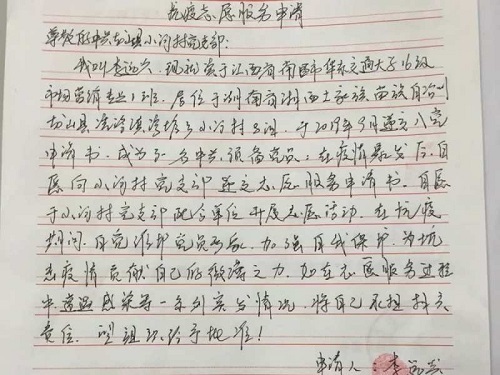 抗疫志愿服务申请
尊敬的中共龙山县小河村党支部:
我叫李远兴,现就读于江西省南昌市华东交通大学16级
市场营销专业1班。居住于湖南省湘西土家族苗族自治州
龙山县洗洛镇小河村8组,于2019年9月递交入党
申请书,成为了一名中共预备党员;在疫情暴发后,自
愿向小河村党支部递交志愿服务申请书。自愿
于小河村党支部配合单位开展志愿活动。在抗疫
期间,自觉维护党员形象,加强自我保护,为抗
击疫情贡献自己的微薄之力。如在志愿服务过程
中遭遇感染等一系列突发情况,将自己承担相应
责任。望组织给予批准!
申请人:李